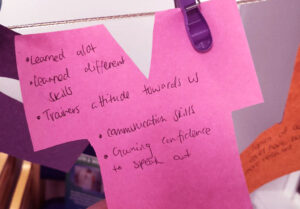 • Learned alot
• Learned different
skills
• Trainers attitude towards W
• communication skills
• Gaining confidence
to speak out